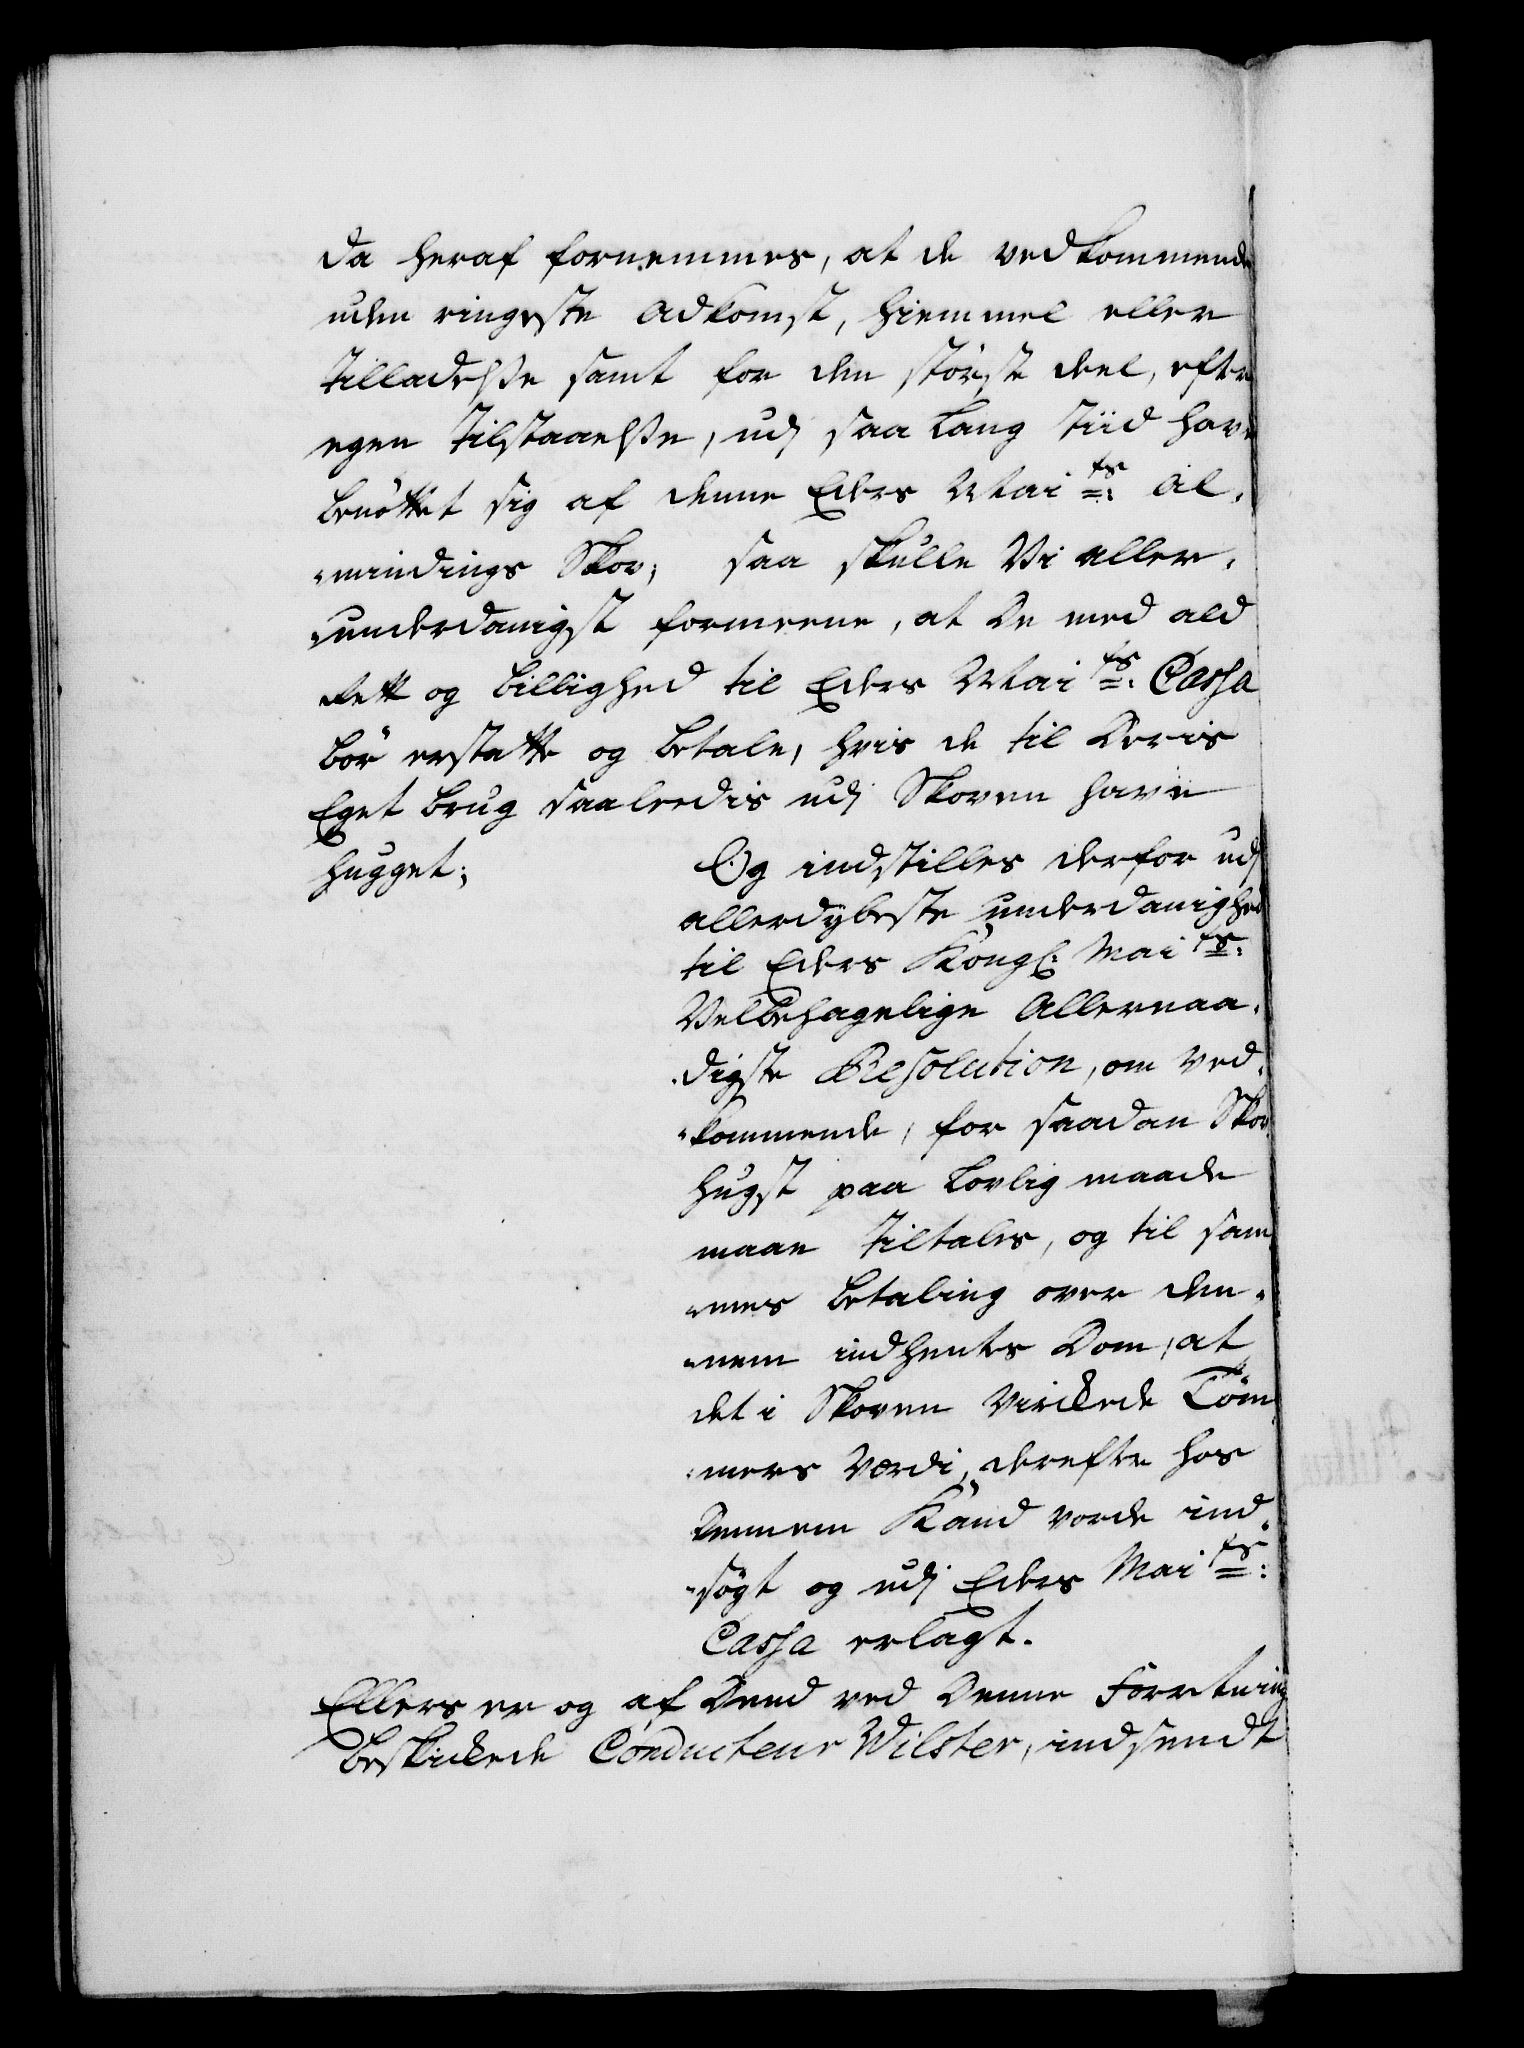 da heraf fornemmes, at de vedkommende
uden ringeste adkomst, hiemmel eller
tilladelße samt for den störste deel, efter
egen tilstaaelße, udj saa lang tiid have
benöttet sig af denne Eders Maiᵗˢ: Al-
mindings Skov; saa skulle Vi aller-
underdanigst formeene, at De med ald
Rett og billighed til Eders Maiᵗˢ: Cassa
bör erstatte og betale, hvis de til Deris
Eget brug saaleedis udj Skoven have
hugget;
Og indstilles derfor udj
allerdybeste underdanighed
til Eders Kongl: Maiᵗˢ:
Velbehagelige Allernaa-
digste Resolution, om Ved-
kommende, for saadan Skov
hugst paa Lovlig maade
maae tiltales, og til sam
mes betaling over den-
nem indhentes Dom, at
det i Skoven Virckede Töm
mers Værdi, derefter hos
Dennem Kand vorde ind-
sögt og udj Eders Maiᵗˢ:
Cassa erlagt.
Ellers er og af Dend ved Denne Forretning
beskickede Conducteur Wilster, indsendt